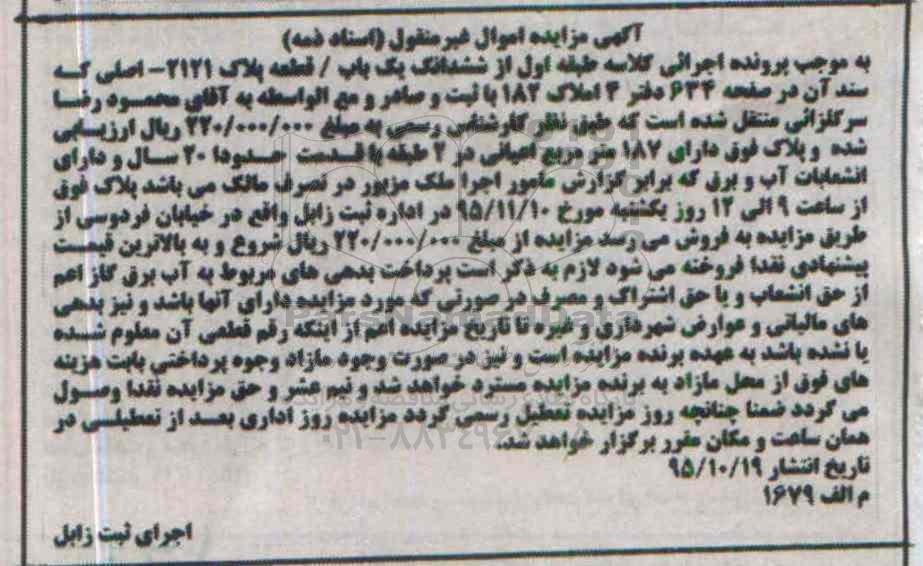 آگهی مزایده اموال غیرمنقول (اسناد ذمه)
به موجب پرونده اجرائی کلاسه طبقه اول از ششدانگ یک باب / قطعه پلاک ۲۱۲۱- اصلی که
سند آن در صفحه ۶۳۴ دفتر ۴ املاک ۱۸۲ با ثبت و صادر و مع الواسطه به آقای محمود رضا
سرگلزائی منتقل شده است که طبق نظر کارشناس رسمی به مبلغ ۲۲۰/۰۰۰/۰۰۰ ریال ارزیابی
شده و پلاک فوق دارای ۱۸۷ متر مربع اعیانی در ۲ طبقه با قدمت حدودا ۲۰ سال و دارای
انشعابات آب و برق که برابر گزارش مامور اجرا ملک مزبور در تصرف مالک می باشد پلاک فوق
از ساعت ۹ الی ۱۲ روز یکشنبه مورخ ۹۵/۱۱/۱۰ در اداره ثبت زابل واقع در خیابان فردوسی از
طریق مزایده به فروش می رسد مزایده از مبلغ ۲۲۰/۰۰۰/۰۰۰ ریال شروع و به بالاترین قیمت
پیشنهادی نقدا فروخته می شود لازم به ذکر است پرداخت بدهی های مربوط به آب برق گاز اعم
از حق انشعاب و یا حق اشتراک و مصرف در صورتی که مورد مزایده دارای آنها باشد و نیز بدهی
های مالیاتی و عوارض شهرداری و غیره تا تاریخ مزایده اعم از اینکه رقم قطعی آن معلوم شده
یا نشده باشد به عهده برنده مزایده است و نیز در صورت وجود مازاد وجوه پرداختی بابت هزینه
های فوق از محل مازاد به برنده مزایده مسترد خواهد شد و نیم عشر و حق مزایده نقدا وصول
می گردد ضمنا چنانچه روز مزایده تعطیل رسمی گردد مزایده روز اداری بعد از تعطیلی در
همان ساعت و مکان مقرر برگزار خواهد شد.
تاریخ انتشار ۹۵/۱۰/۱۹
م الف ۱۶۷۹
اجرای ثبت زابل
ParsNamadData